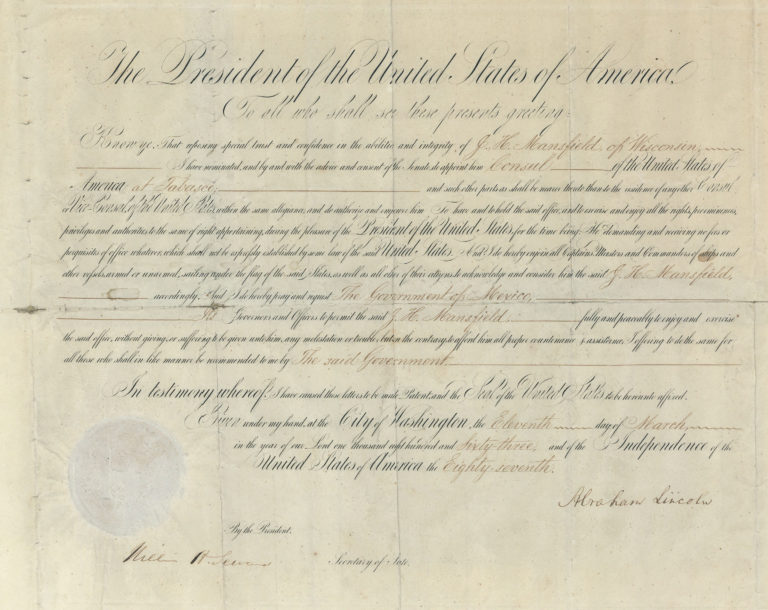 The President of the United States of America,
To all who shall see these presents greeting:
Know ye; That reposing special trust and confidence in the abilities and integrity of J. H. Mansfield, of Wisconsin,
I have nominated, and by and with the advice and consent of the Senate do appoint him Consul of the United States of
America at Tabasco, and such other parts as shall be nearer thereto than to the residence of any other Consul
or Vice-Consul of the United States, within the same allegiance, and do authorize and empower him To have and to hold the said office, and to exercise and enjoy all the rights, preeminences,
privileges and authorities, to the same of right appertaining, during the pleasure of the President of the United States, for the time being; He demanding and receiving no fees or
perquisites of office whatever, which shall not be expressly established by some law of the said United States. And I do hereby enjoin all Captains, Masters and Commanders of ships and
other vessels, armed or unarmed, sailing under the flag of the said States, as well as all other of their citizens to acknowledge and consider him the said J. H. Mansfield,
accordingly. And I do hereby pray and request The Government of Mexico,
Its Governors and Officers to permit the said J. H. Mansfield fully and peaceably to enjoy and exercise
the said office, without giving, or suffering to be given unto him, any molestation or trouble, but on the contrary to afford him all proper countenance & assistance; I offering to do the same for
all those who shall in like manner be recommended to me by The said Government.
In testimony whereof, I have caused these letters to be made Patent, and the Seal of the United States to be hereunto affixed.
Given under my hand, at the City of Washington, the Eleventh day of March,
in the year of our Lord one thousand eight hundred and Sixty-three, and of the Independence of the
United States of America, the Eighty-seventh.
Abraham Lincoln
By the President,
William H. Seward Secretary of State.